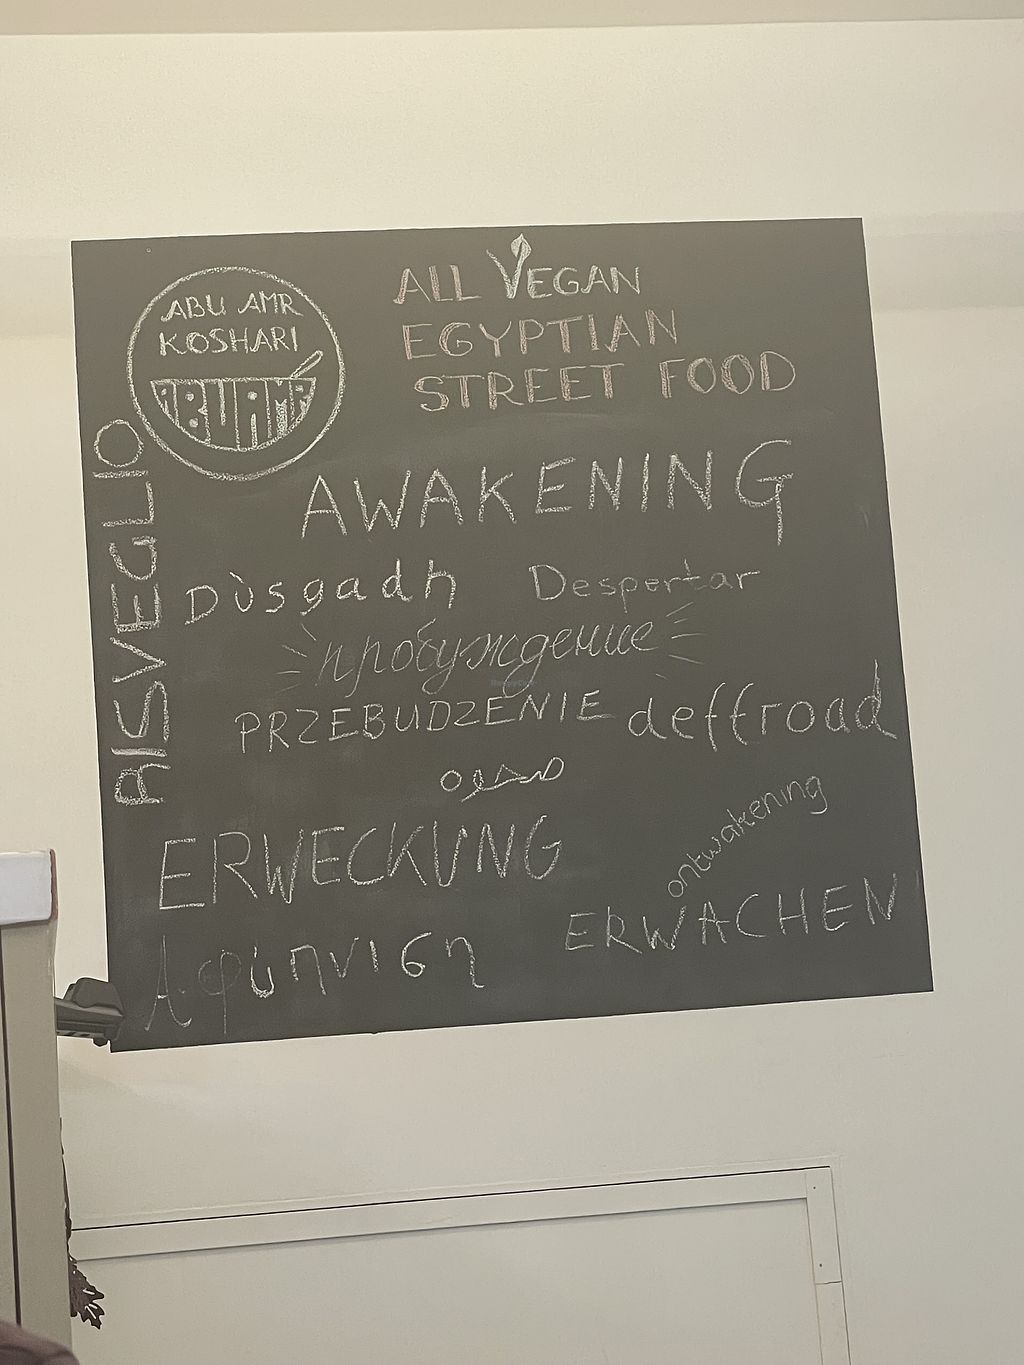 ABU AMR
KOSHARI
ABUAMR
ALL VEGAN
EGYPTIAN
STREET FOOD
RISVEGLIO
AWAKENING
Dùsgadh Despertar
пробуждение
PRZEBUDZENIE deffroad
صحوه
ERWECKUNG
ontwakening
ERWACHEN
Αφύπνιση